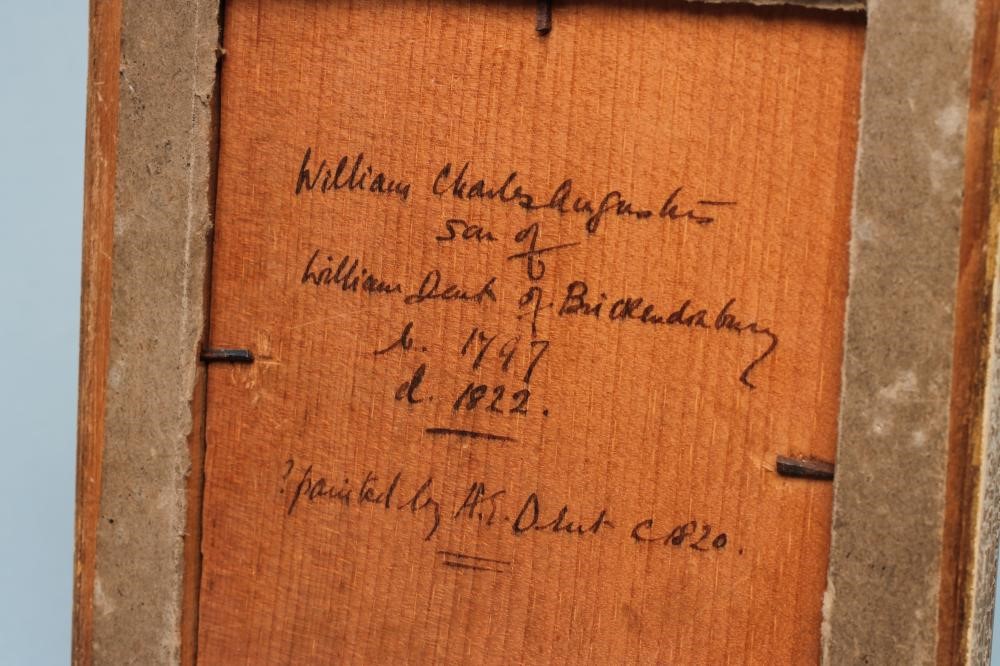 William Charles Augustus
son of
William Dent of Brickendonbury
b. 1797
d. 1822.
? painted by A.E. Dent c 1820.